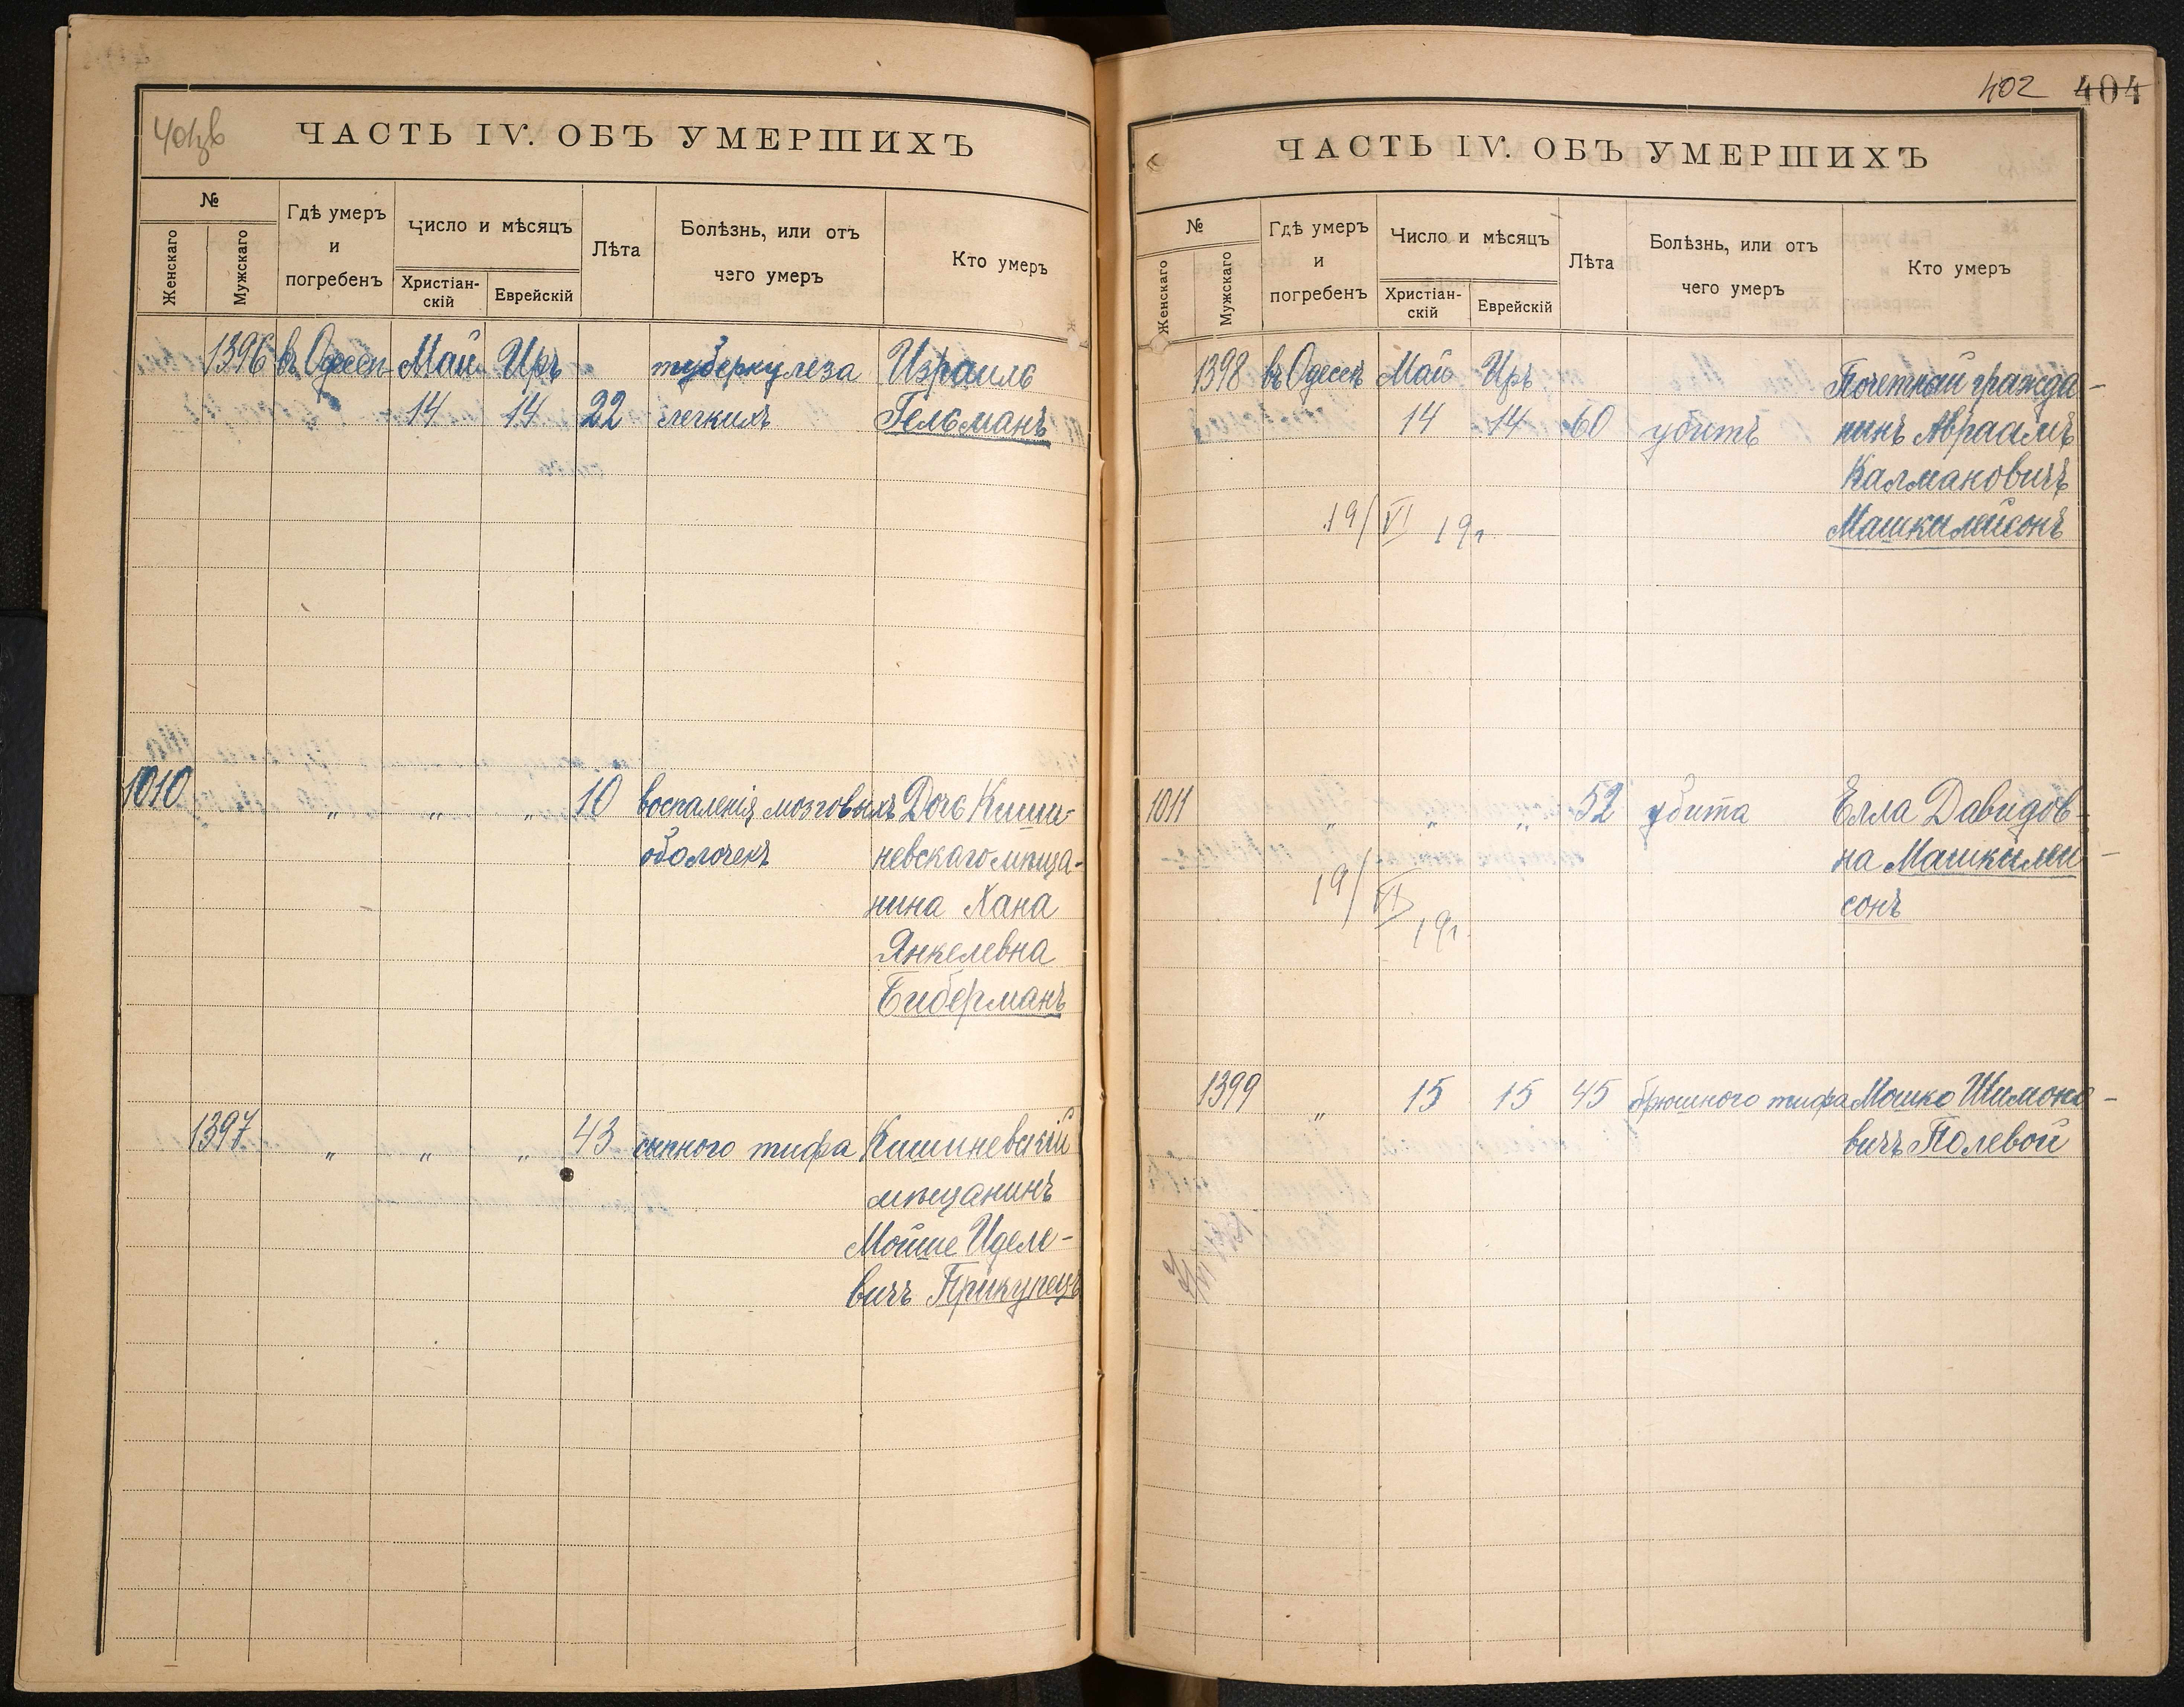 401зв
ЧАСТЬ IV. ОБЪ УМЕРШИХЪ
№
Женскаго
Мужскаго
Гдѣ умеръ
и
погребенъ
Число и мѣсяцъ
Христіан-
скій
Еврейскій
Лѣта
Болѣзнь, или отъ
чего умеръ
Кто умеръ
1396 въ Одессѣ Май Иръ туберкулеза Израиль
14 14 22 легкихъ Гельманъ
1010 " " " 10 воспаленія мозговыхъ Дочь Киши-
оболочекъ невскаго мѣща-
нина Хана
Янкелевна
Биберманъ
1397 " " " 43 сыпного тифа Кишиневскій
мѣщанинъ
Мойше Иделе-
вичъ Прикупецъ
402 404
ЧАСТЬ IV. ОБЪ УМЕРШИХЪ
№
Женскаго
Мужскаго
Гдѣ умеръ
и
погребенъ
Число и мѣсяцъ
Христіан-
скій
Еврейскій
Лѣта
Болѣзнь, или отъ
чего умеръ
Кто умеръ
1398 въ Одессѣ Май Иръ Почетный гражда-
14 14 60 убитъ нинъ Авраамъ
Калмановичъ
19/VI 19г. Машкилейсонъ
1011 " " " 52 убита Елла Давидов-
на Машкилей-
19/VI 19г. сонъ
1399 " 15 15 45 брюшного тифа Мошко Шимоно-
вичъ Полевой